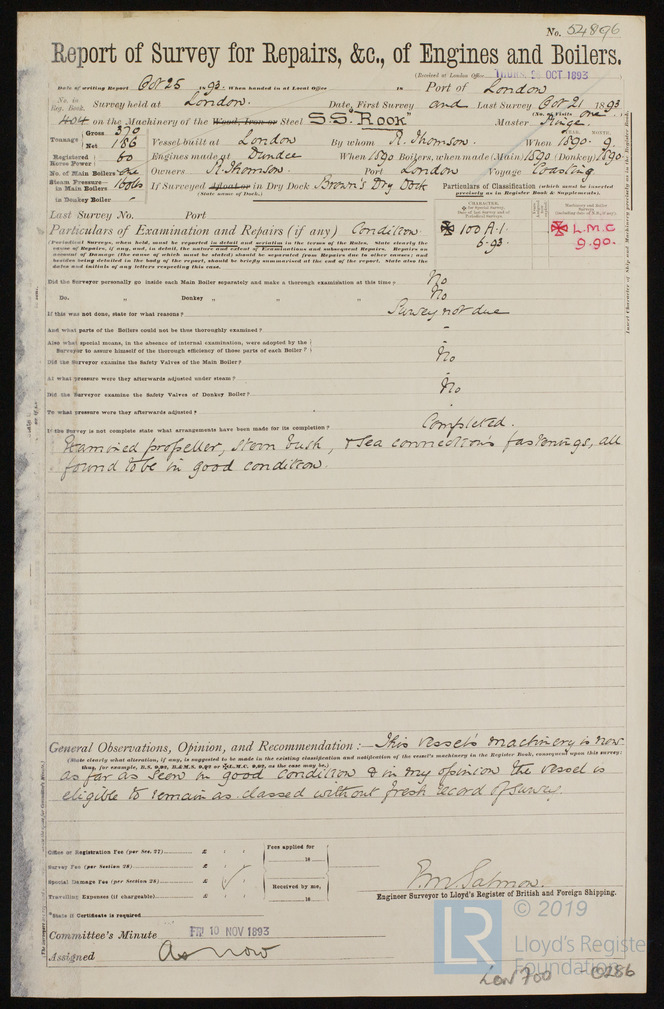 No. 54896
Report of Survey for Repairs, &c., of Engines and Boilers.
(Received at London Office THURS. OCT 1893)
Date of writing Report Oct 25 1893. When handed in at Local Office 18 Port of London
No. in Reg. Book. Survey held at London. Date, First Survey and Last Survey Oct 21 1893
(No. of Visits one.)
404 on the Machinery of the Wood, Iron or Steel S.S. "Rook" Master
Tonnage Gross 370 Net 186 Vessel built at London By whom R. Thomson. When 1890. 9. YEAR. MONTH.
Registered Horse Power 60 Engines made at Dundee When 1890 Boilers, when made (Main) 1890 (Donkey) 1890
No. of Main Boilers one Owners R. Thomson. Port London Voyage Coasting
Steam Pressure in Main Boilers 160 lbs If Surveyed Afloat or in Dry Dock Brown's Dry Dock
(State name of Dock.)
in Donkey Boiler -
Particulars of Classification (which must be inserted precisely as in Register Book & Supplements).
Last Survey No. Port
CHARACTER. 100 A.1. 5.93.
Machinery and Boiler Surveys L.M.C 9.90.
Particulars of Examination and Repairs (if any) Condition.
(Periodical Surveys, when held, must be reported in detail and seriatim in the terms of the Rules. State clearly the
cause of Repairs, if any, and, in detail, the nature and extent of Examinations and subsequent Repairs. Repairs on
account of Damage (the cause of which must be stated) should be separated from Repairs due to other causes; and
besides being detailed in the body of the report, should be briefly summarised at the end of the report. State also the
dates and initials of any letters respecting this case.
Did the Surveyor personally go inside each Main Boiler separately and make a thorough examination at this time? No
Do. " Donkey " " " No
If this was not done, state for what reasons? Survey not due
And what parts of the Boilers could not be thus thoroughly examined? -
Also what special means, in the absence of internal examination, were adopted by the
Surveyor to assure himself of the thorough efficiency of those parts of each Boiler? -
Did the Surveyor examine the Safety Valves of the Main Boiler? No
At what pressure were they afterwards adjusted under steam? -
Did the Surveyor examine the Safety Valves of Donkey Boiler? No
To what pressure were they afterwards adjusted? -
If the Survey is not complete state what arrangements have been made for its completion? Completed.
Examined propeller, stern bush, & sea connections fastenings, all
found to be in good condition.
General Observations, Opinion, and Recommendation:— This vessel's machinery is now
(State clearly what alteration, if any, is suggested to be made in the existing classification and notification of the vessel's machinery in the Register Book, consequent upon this survey;
thus, for example, B.S. 9,92 or B.&M.S. 9,92 or L.M.C. 9,92, as the case may be.)
as far as seen in good condition & in my opinion the vessel is
eligible to remain as classed without fresh record of survey.
Office or Registration Fee (per Sec. 27) £
Survey Fee (per Section 28) £
Special Damage Fee (per Section 28) £
Travelling Expenses (if chargeable) £
Fees applied for
18
Received by me,
18
P.M. Salmon.
Engineer Surveyor to Lloyd's Register of British and Foreign Shipping.
*State if Certificate is required
Committee's Minute FRI 10 NOV 1893
Assigned As now
© 2019
LR Lloyd's Register
Foundation
LON 700 - 0286